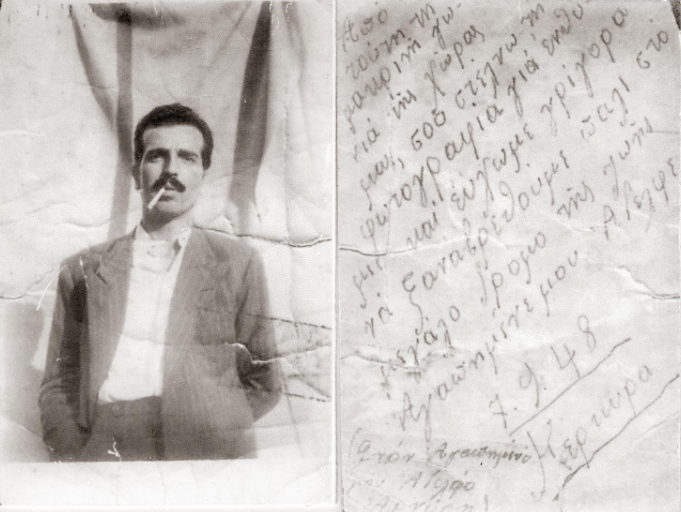 Από
τούτη τη
μακρινή γω-
νιά τής χώρας
μας, σού στέλνω τη
φωτογραφία γιά ένθύ-
μιο και εύχωμε γρίγορα
νά ξαναβρεθούμε πάλι στό
μεγάλο δρομο τής ζωής
Αγαπημένε μου Αδελφέ
7.9.48
Κερκυρα
(Στόν Αγαπημένο
μου Αδελφό